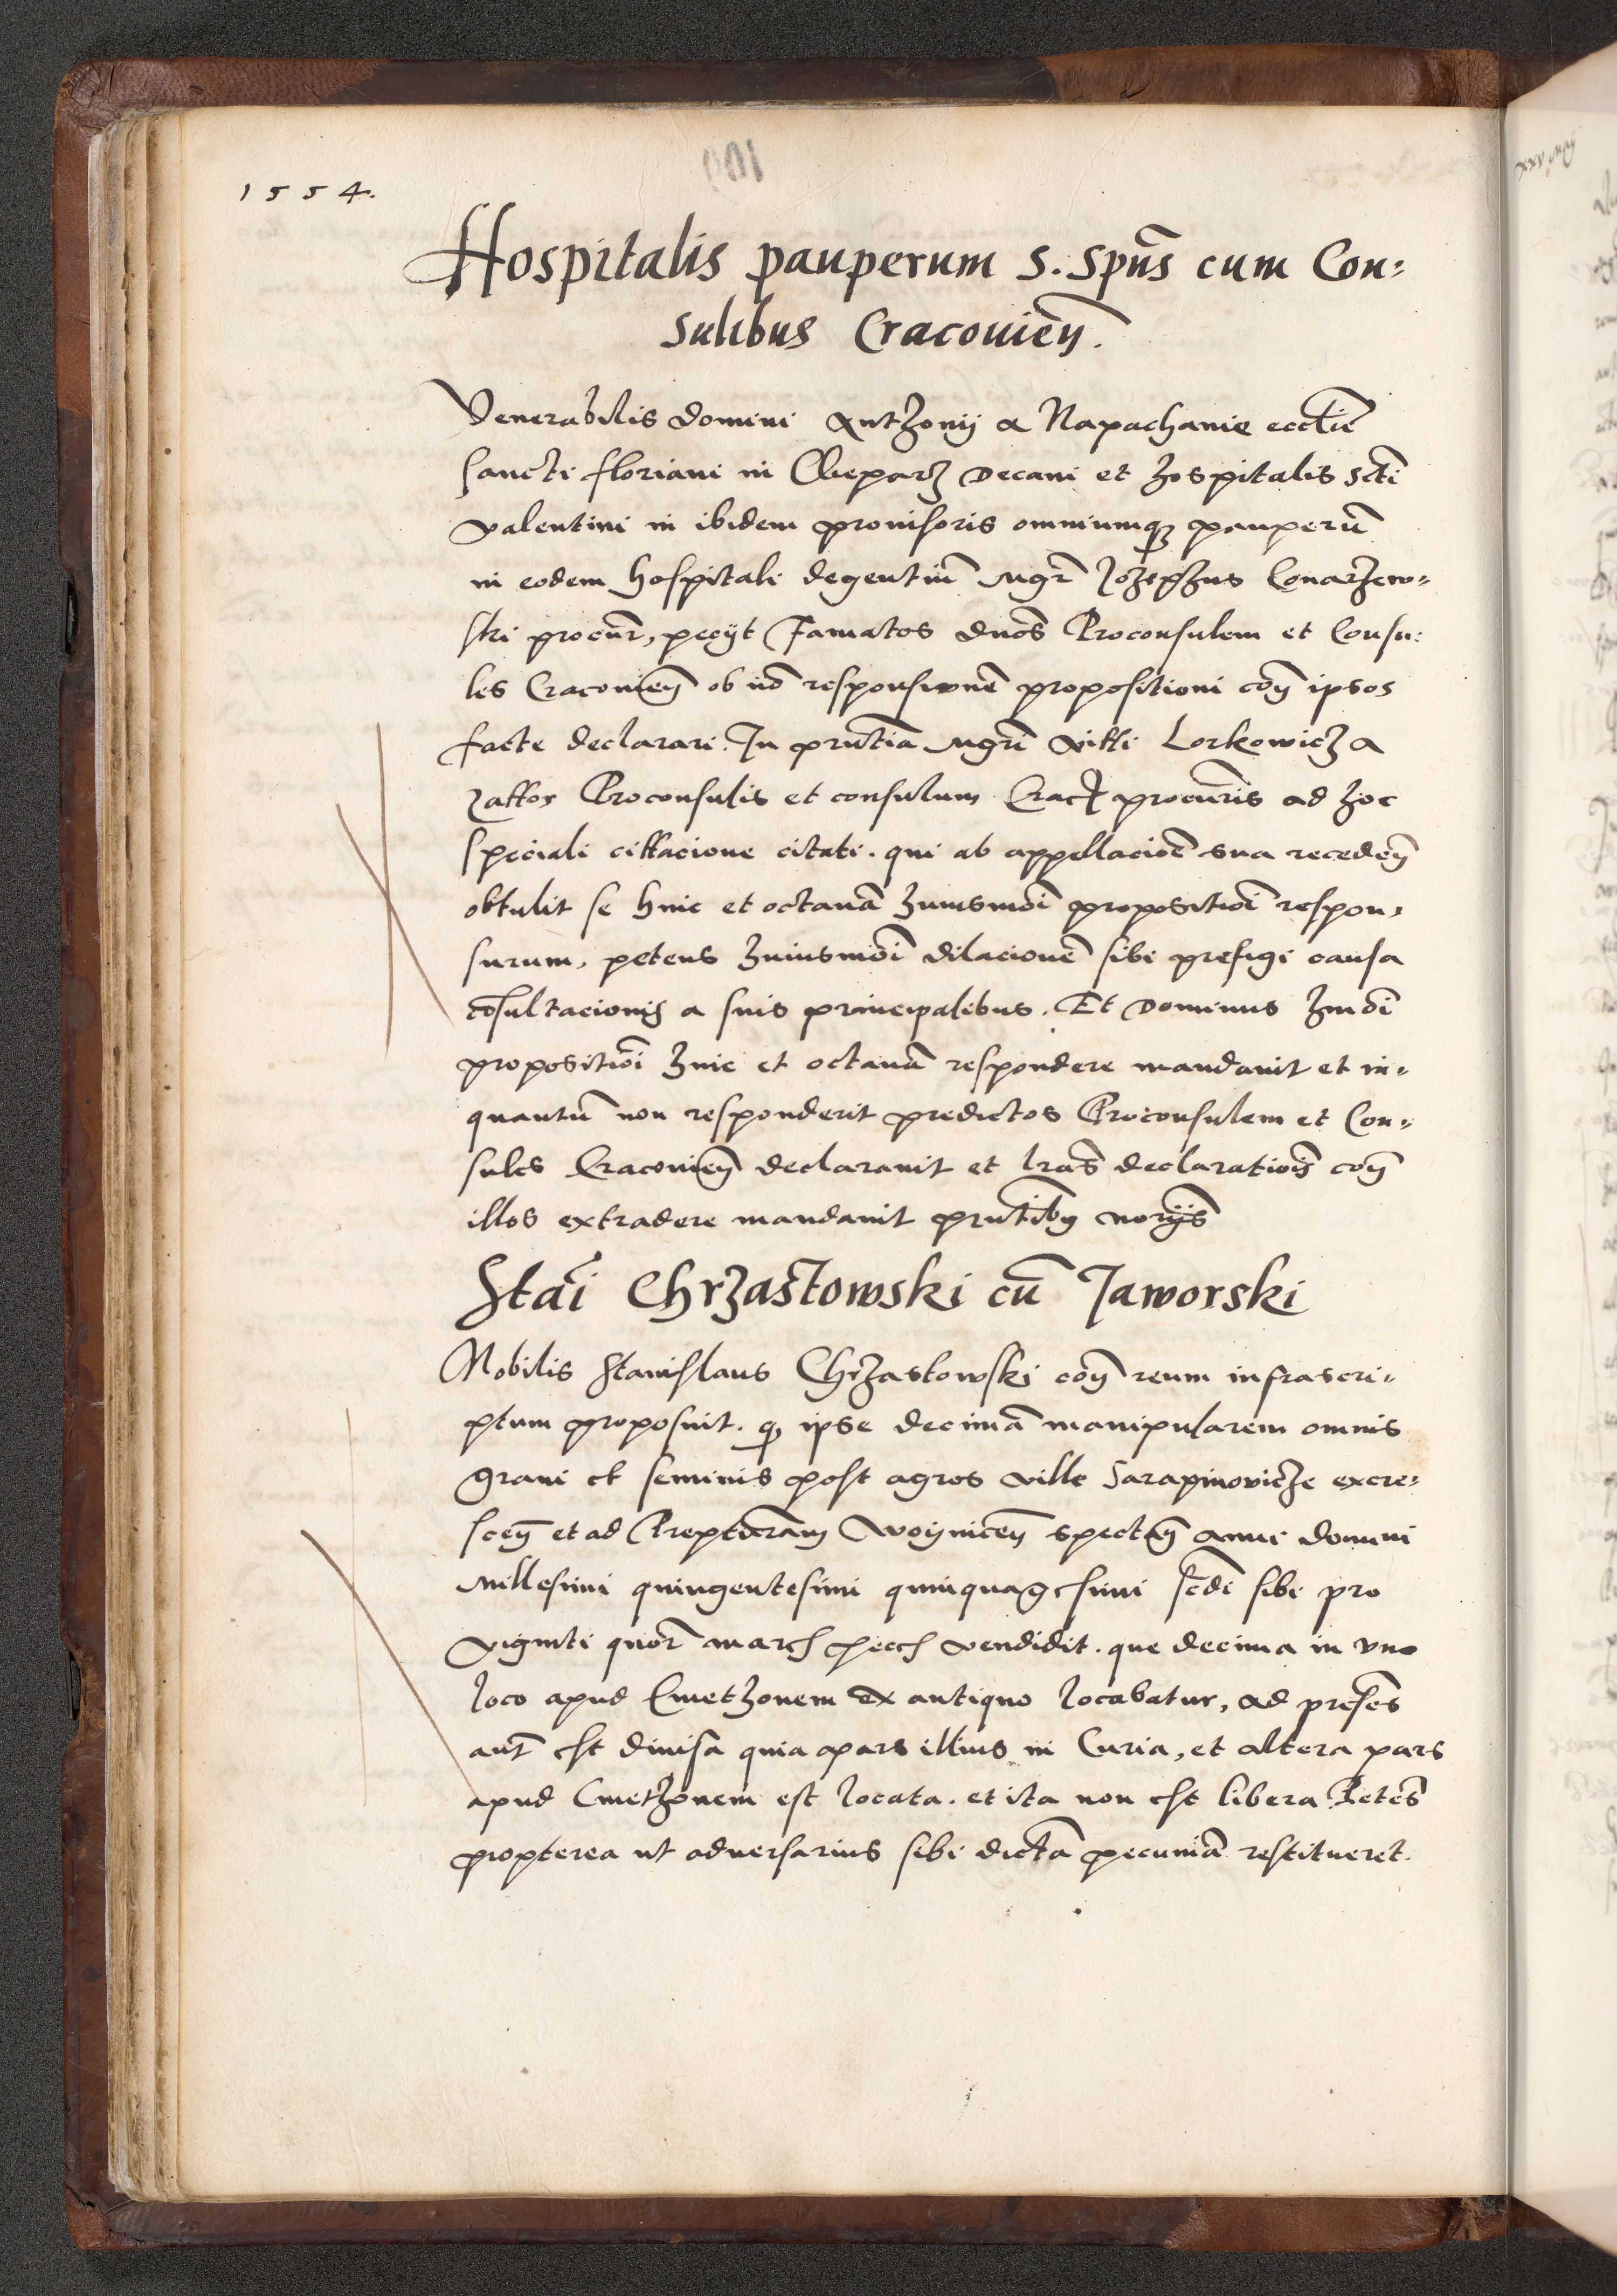 1554.
Hospitalis pauperum S. Spūs cum Con:
sulibus Cracouień.
Venerabilis Domini Anthonij a Napachanie eccľie
sancti floriani in Cleparz Decani et hospitalis Scti
valentini in ibidem prouisoris omniumq₃ pauperū
in eodem hospitali degentiū Mgr̄ Johephus Conarzew-
ski procur̄, pecijt Famatos dnōs Proconsulem et Consu:
les Cracouień ob nō responsionē propositioni coñ ipsos
facte declarari. In pn̄tia Mgri Vitti Lorkowicz a
Zattor Proconsulis et consulum Crac procuris ad hoc
speciali cittacione citati. qui ab appellacioē sua receden̄
obtulit se hinc et octauā huiusmōi propositiōi respon-
surum, petens huiusmōi dilacionē sibi prefigi causa
cōsultacionis a suis principalibus. Et Dominus hmōi
propositiōi hinc et octauā respondere mandauit et in-
quantū non responderit predictos Proconsulem et Con-
sules Cracouień declarauit et lrās declaratiōis coñ
illos extradere mandauit pn̄tibus norijs
Stāi Chrzastowski cū Jaworski
Nobilis Stanislaus Chrzastowski coñ reum infrascri-
ptum proposuit. q̨ ipse decimā manipularem omnis
grani et seminis post agros ville Sarapinovicze excre-
sceñ et ad Prepturam Woijniceñ spectañ Anni domini
Millesimi quingentesimi quinquagesimi scd̄i sibi pro
viginti quōr march pecch vendidit. que decima in vno
loco apud Cmethonem ex antiquo locabatur, ad presēs
aut̄ est diuisa quia pars illius in Curia, et altera pars
apud Cmethonem est locata. et ita non est libera Petēs
propterea ut aduersarius sibi dictā pecuniā restitueret.